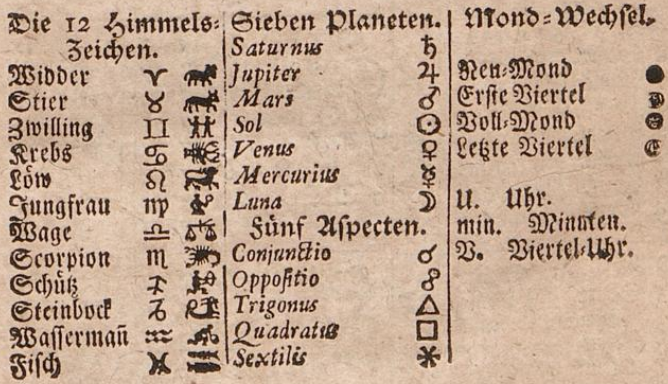 Die 12 Himmels-
Zeichen.
Widder ♈
Stier ♉
Zwilling ♊
Krebs ♋
Löw ♌
Jungfrau ♍
Wage ♎
Scorpion ♏
Schütz ♐
Steinbock ♑
Wassermañ ♒
Fisch ♓
Sieben Planeten.
Saturnus ♄
Jupiter ♃
Mars ♂
Sol ☉
Venus ♀
Mercurius ☿
Luna ☽
Fünf Aspecten.
Conjunctio ☌
Oppositio ☍
Trigonus △
Quadratus □
Sextilis ⚹
Mond-Wechsel.
Neu-Mond
Erste Viertel
Voll-Mond
Letzte Viertel
U. Uhr.
min. Minuten.
V. Viertel-Uhr.